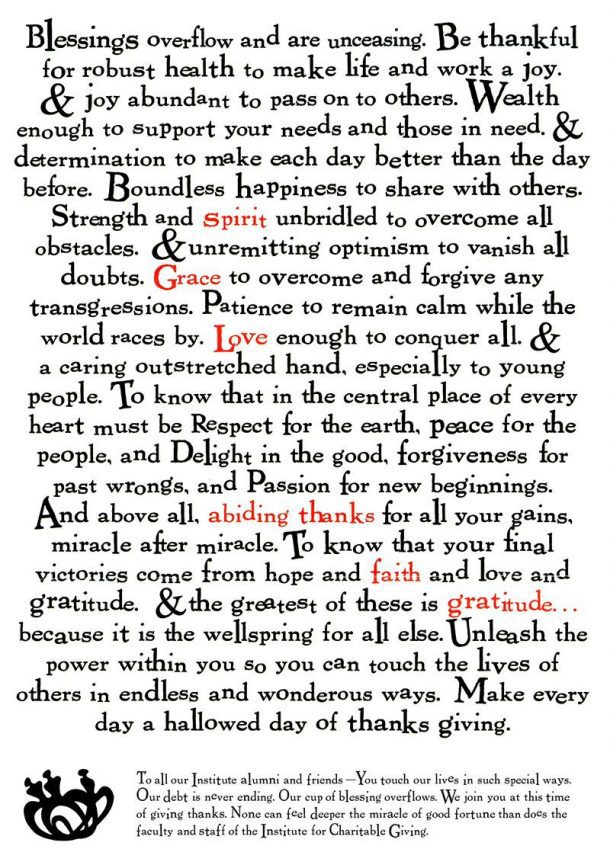 Blessings overflow and are unceasing. Be thankful
for robust health to make life and work a joy.
& joy abundant to pass on to others. Wealth
enough to support your needs and those in need. &
determination to make each day better than the day
before. Boundless happiness to share with others.
Strength and spirit unbridled to overcome all
obstacles. & unremitting optimism to vanish all
doubts. Grace to overcome and forgive any
transgressions. Patience to remain calm while the
world races by. Love enough to conquer all. &
a caring outstretched hand, especially to young
people. To know that in the central place of every
heart must be Respect for the earth, peace for the
people, and Delight in the good, forgiveness for
past wrongs, and Passion for new beginnings.
And above all, abiding thanks for all your gains,
miracle after miracle. To know that your final
victories come from hope and faith and love and
gratitude. & the greatest of these is gratitude...
because it is the wellspring for all else. Unleash the
power within you so you can touch the lives of
others in endless and wonderous ways. Make every
day a hallowed day of thanks giving.
To all our Institute alumni and friends—You touch our lives in such special ways.
Our debt is never ending. Our cup of blessing overflows. We join you at this time
of giving thanks. None can feel deeper the miracle of good fortune than does the
faculty and staff of the Institute for Charitable Giving.